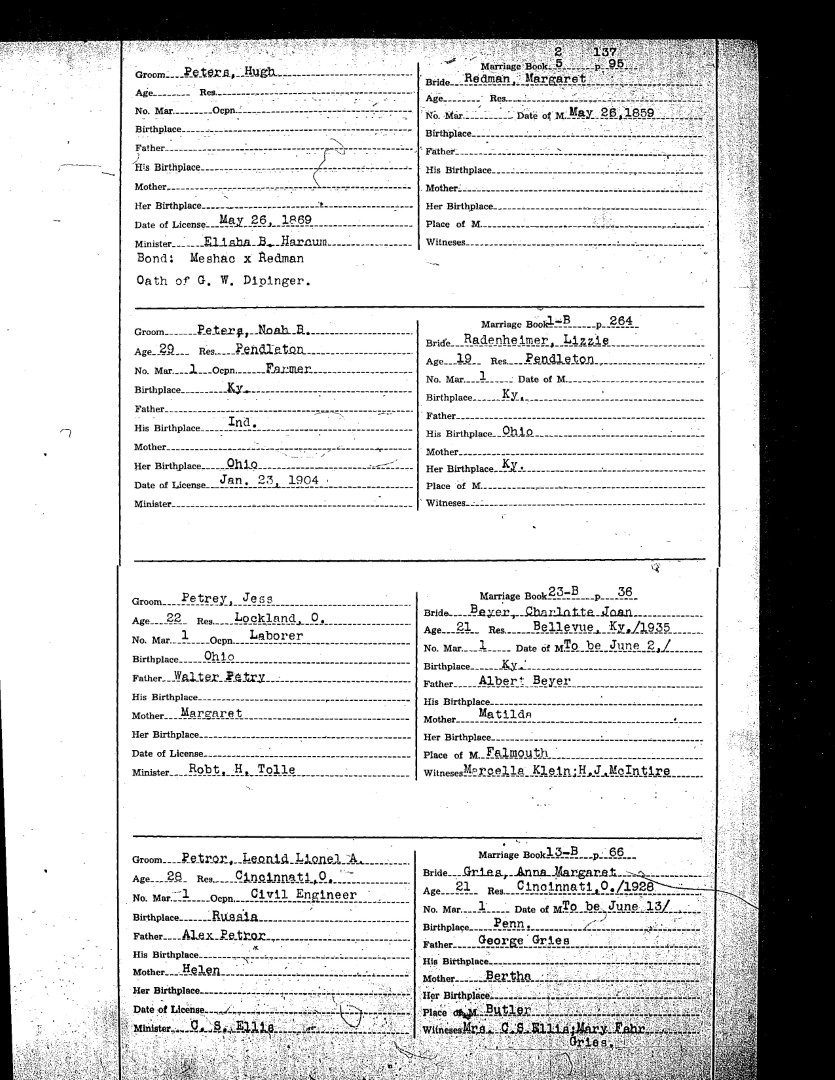 2 137
Groom Peters, Hugh
Marriage Book 5 p 95
Bride Redman, Margaret
Age Res.
Age Res.
No. Mar. Ocpn.
No. Mar. Date of M. May 26, 1859
Birthplace
Birthplace
Father
Father
His Birthplace
His Birthplace
Mother
Mother
Her Birthplace
Her Birthplace
Date of License May 26, 1869
Place of M.
Minister Elisha B. Harcum
Witneses
Bond: Meshac x Redman
Oath of G. W. Dipinger.
Groom Peters, Noah B.
Marriage Book 1-B p 264
Bride Radenheimer, Lizzie
Age 29 Res. Pendleton
Age 19 Res. Pendleton
No. Mar. 1 Ocpn. Farmer
No. Mar. 1 Date of M.
Birthplace Ky.
Birthplace Ky.
Father
Father
His Birthplace Ind.
His Birthplace Ohio
Mother
Mother
Her Birthplace Ohio
Her Birthplace Ky.
Date of License Jan. 23, 1904
Place of M.
Minister
Witneses
Groom Petrey, Jess
Marriage Book 23-B p 36
Bride Beyer, Charlotte Joan
Age 22 Res. Lockland, O.
Age 21 Res. Bellevue, Ky./1935
No. Mar. 1 Ocpn. Laborer
No. Mar. 1 Date of M. To be June 2,/
Birthplace Ohio
Birthplace Ky.
Father Walter Petry
Father Albert Beyer
His Birthplace
His Birthplace
Mother Margaret
Mother Matilda
Her Birthplace
Her Birthplace
Date of License
Place of M. Falmouth
Minister Robt. H. Tolle
Witneses Marcella Klein;H.J.McIntire
Groom Petror, Leonid Lionel A.
Marriage Book 13-B p 66
Bride Gries, Anna Margaret
Age 28 Res. Cincinnati,O.
Age 21 Res. Cincinnati,O./1926
No. Mar. 1 Ocpn. Civil Engineer
No. Mar. 1 Date of M. To be June 13/
Birthplace Russia
Birthplace Penn.
Father Alex Petror
Father George Gries
His Birthplace
His Birthplace
Mother Helen
Mother Bertha
Her Birthplace
Her Birthplace
Date of License
Place of M. Butler
Minister C. S. Ellis
Witneses Mrs. C.S.Ellis;Mary Fahr
Gries.